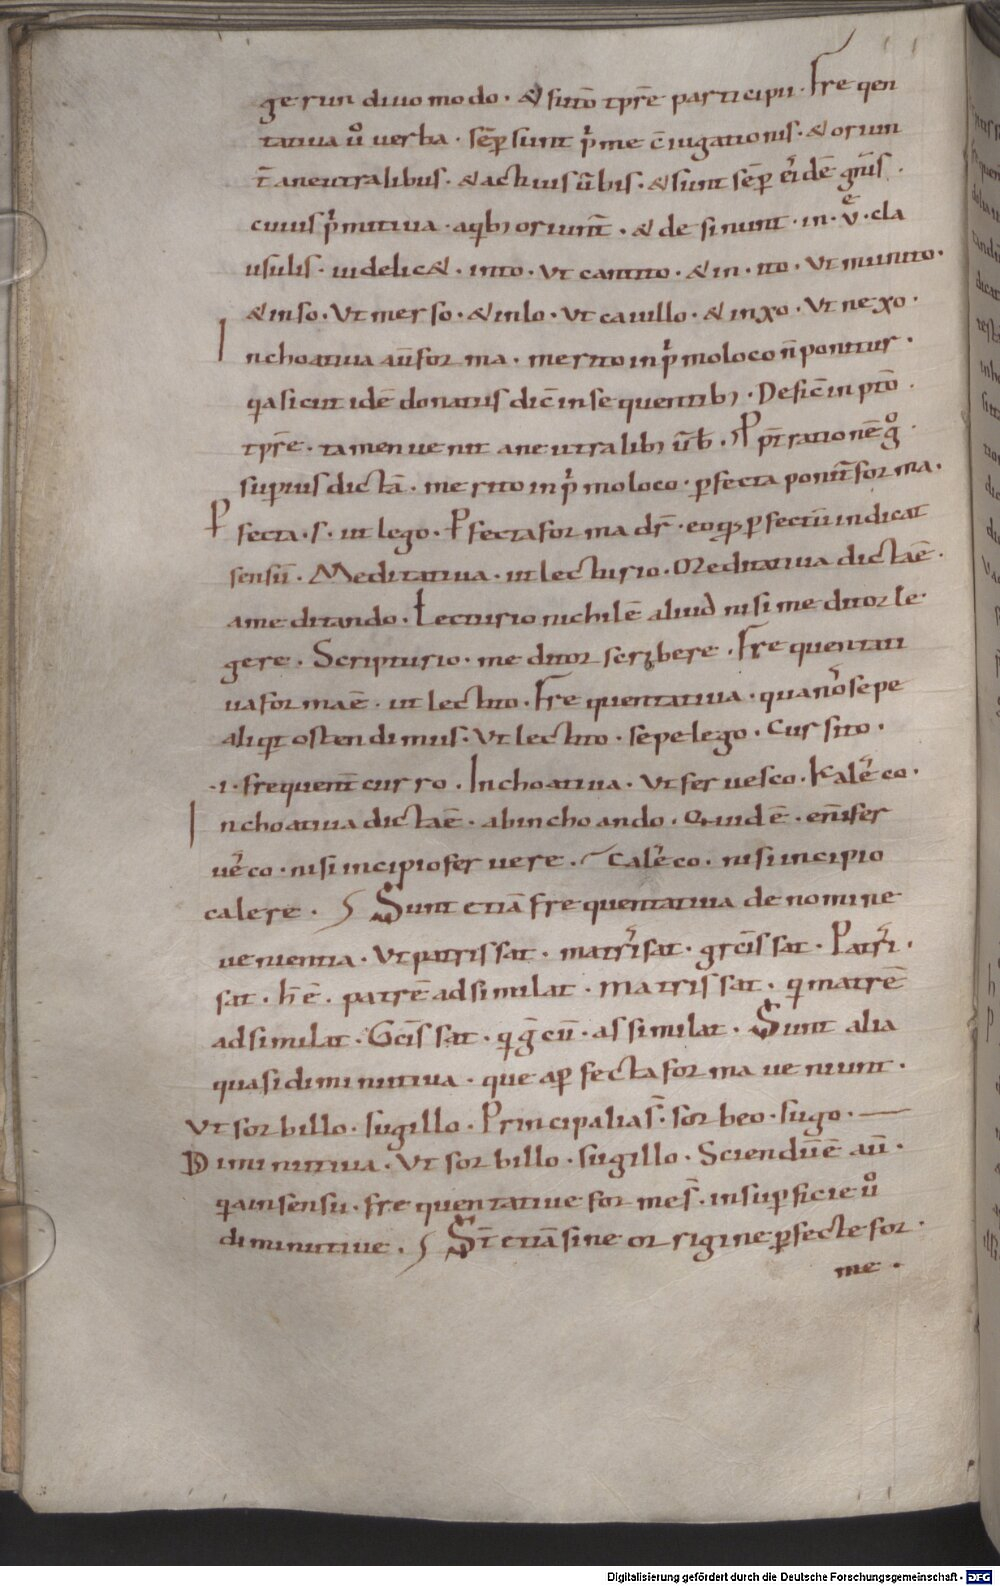 gerun diuo modo · & futō tp̄re participii · Freqen
tatiua ů uerba · sēp sunt p̓me c̄iugationis · & oriun
t̄ aneutralibus · & actiuis ūbis · & sunt sēp ei᷒dē gn̄is ·
cuius p̓mitiua · aqib; oriunt̄ · & desinunt · in · v̊e · cla
usulis · uidelic& · into · Ut cantito · & in · ito · Ut munito ·
& inso · Ut merso · & inlo · Ut cauillo · & inxo · Ut nexo ·
Inchoatiua aūforma · merito in p̓moloco n̄ponitur ·
qasicut idē donatus dic̄ insequentib; · Defic̄ in pt̄o
tp̄re · tamen uenit aneutralib; ūb̄ · Pp̄t rationē g̊
superius dictā · merito in p̓moloco · pfecta ponit̄ forma ·
Pfecta · s · ut lego · Pfecta forma dr̄ · eo qd pfectū indicat
sensū · Meditatiua · ut lecturio · Meditatiua dicta ē ·
ameditando · Lecturio nichil ē aliud nisi meditor le
gere · Scripturio · meditor scribere · Frequentati
ua forma ē · ut lectito · Frequentatiua · quando sepe
aliqit ostendimus · Ut lectito · sepe lego · Cursito ·
·i· frequent̄ curro · Inchoatiua · Ut feruesco · Kalesco ·
Inchoatiua dicta ē · abinchoando · Quid ē · enī fer
uesco · nisi incipio feruere · Calesco · nisi incipio
calere · Sunt etiā frequentatiua de nomine
uenientia · Ut patrissat · matrisat · grc̄issat · Patri
sat · h̄ ē · patrē adsimilat · Matrissat · qi matrē
adsimilat · Gc̄issat · qi g̅cū · assimilat · Sunt alia
quasi diminutiua · que a pfecta forma ueniunt ·
Ut sorbillo · sugillo · Principalia s̄ · sorbeo · sugo ·
Diminutiua · Ut sorbillo · sugillo · Sciendū ē aū ·
qa insensu · frequentatiue forme s̄ · insupficie ů
diminutiue · St̄ etiā sine orrigine pfecte for
me ·
Digitalisierung gefördert durch die Deutsche Forschungsgemeinschaft · DFG